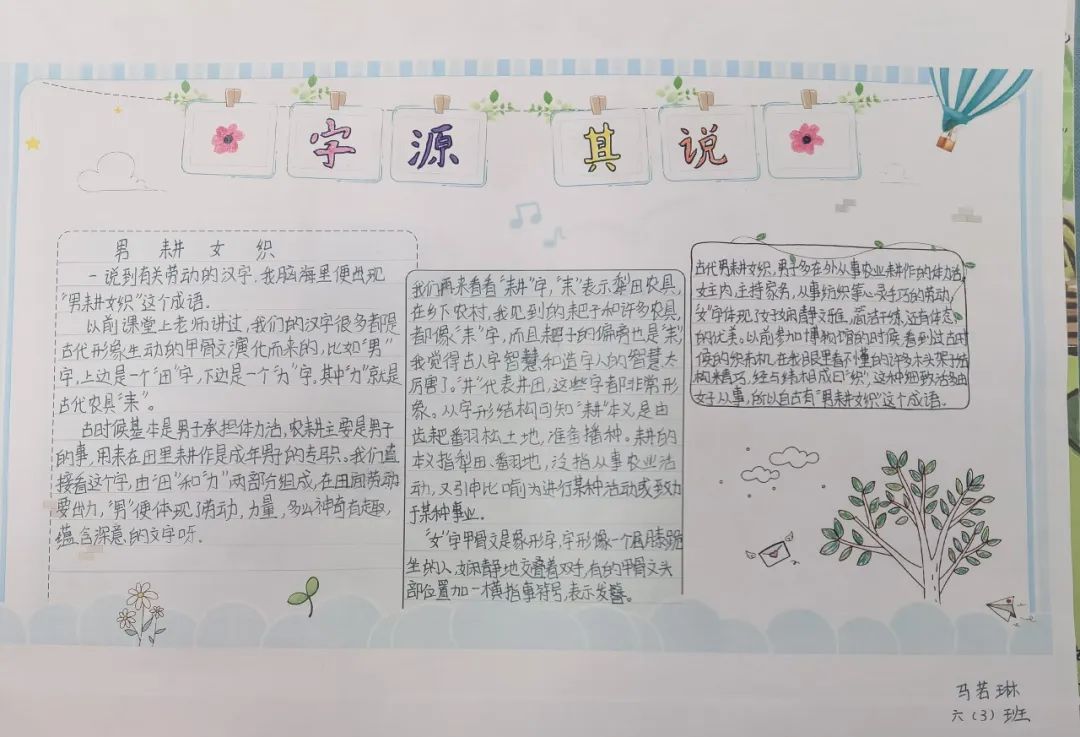 字源其说
男耕女织
一说到有关劳动的汉字,我脑海里便出现
“男耕女织”这个成语.
以前课堂上老师讲过,我们的汉字很多都是
古代形象生动的甲骨文演化而来的,比如“男”
字,上边是一个“田”字,下边是一个“力”字,其中“力”就是
古代农具“耒”。
古时候基本是男子承担体力活,农耕主要是男子
的事,用耒在田里耕作是成年男子的专职。我们直
接看这个字,由“田”和“力”两部分组成,在田间劳动
要出力,“男”便体现了劳动,力量,多么神奇有趣,
蕴含深意的文字呀.
我们再来看看“耕”字,“耒”表示犁田农具,
在乡下农村,我见到的耙子和许多农具,
都像“耒”字,而且耙子的偏旁也是“耒”,
我觉得古人字智慧和造字人的智慧太
厉害了。“井”代表井田,这些字都非常形
象。从字形结构可知“耕”本义是由
齿耙翻松土地,准备播种。耕的
本义指犁田、翻地,泛指从事农业活
动,又引申比喻为进行某种活动或致力
于某种事业.
“女”字甲骨文是象形字,字形像一个屈膝跪
坐的人,娴静地交叠着双手,有的甲骨文头
部位置加一横指事符号,表示发簪。
古代男耕女织,男子多在外从事农业耕作的体力活,
女主内,主持家务,从事纺织等心灵手巧的劳动,
“女”字体现了女子娴静文雅,简洁干练,还有体态
的优美。以前参加博物馆的时候,看到过古时
候的织布机,在我眼里看不懂的许多木头架子结
构精巧,经与纬相成曰“织”,这种细致活多由
女子从事,所以自古有“男耕女织”这个成语.
马若琳
六(3)班